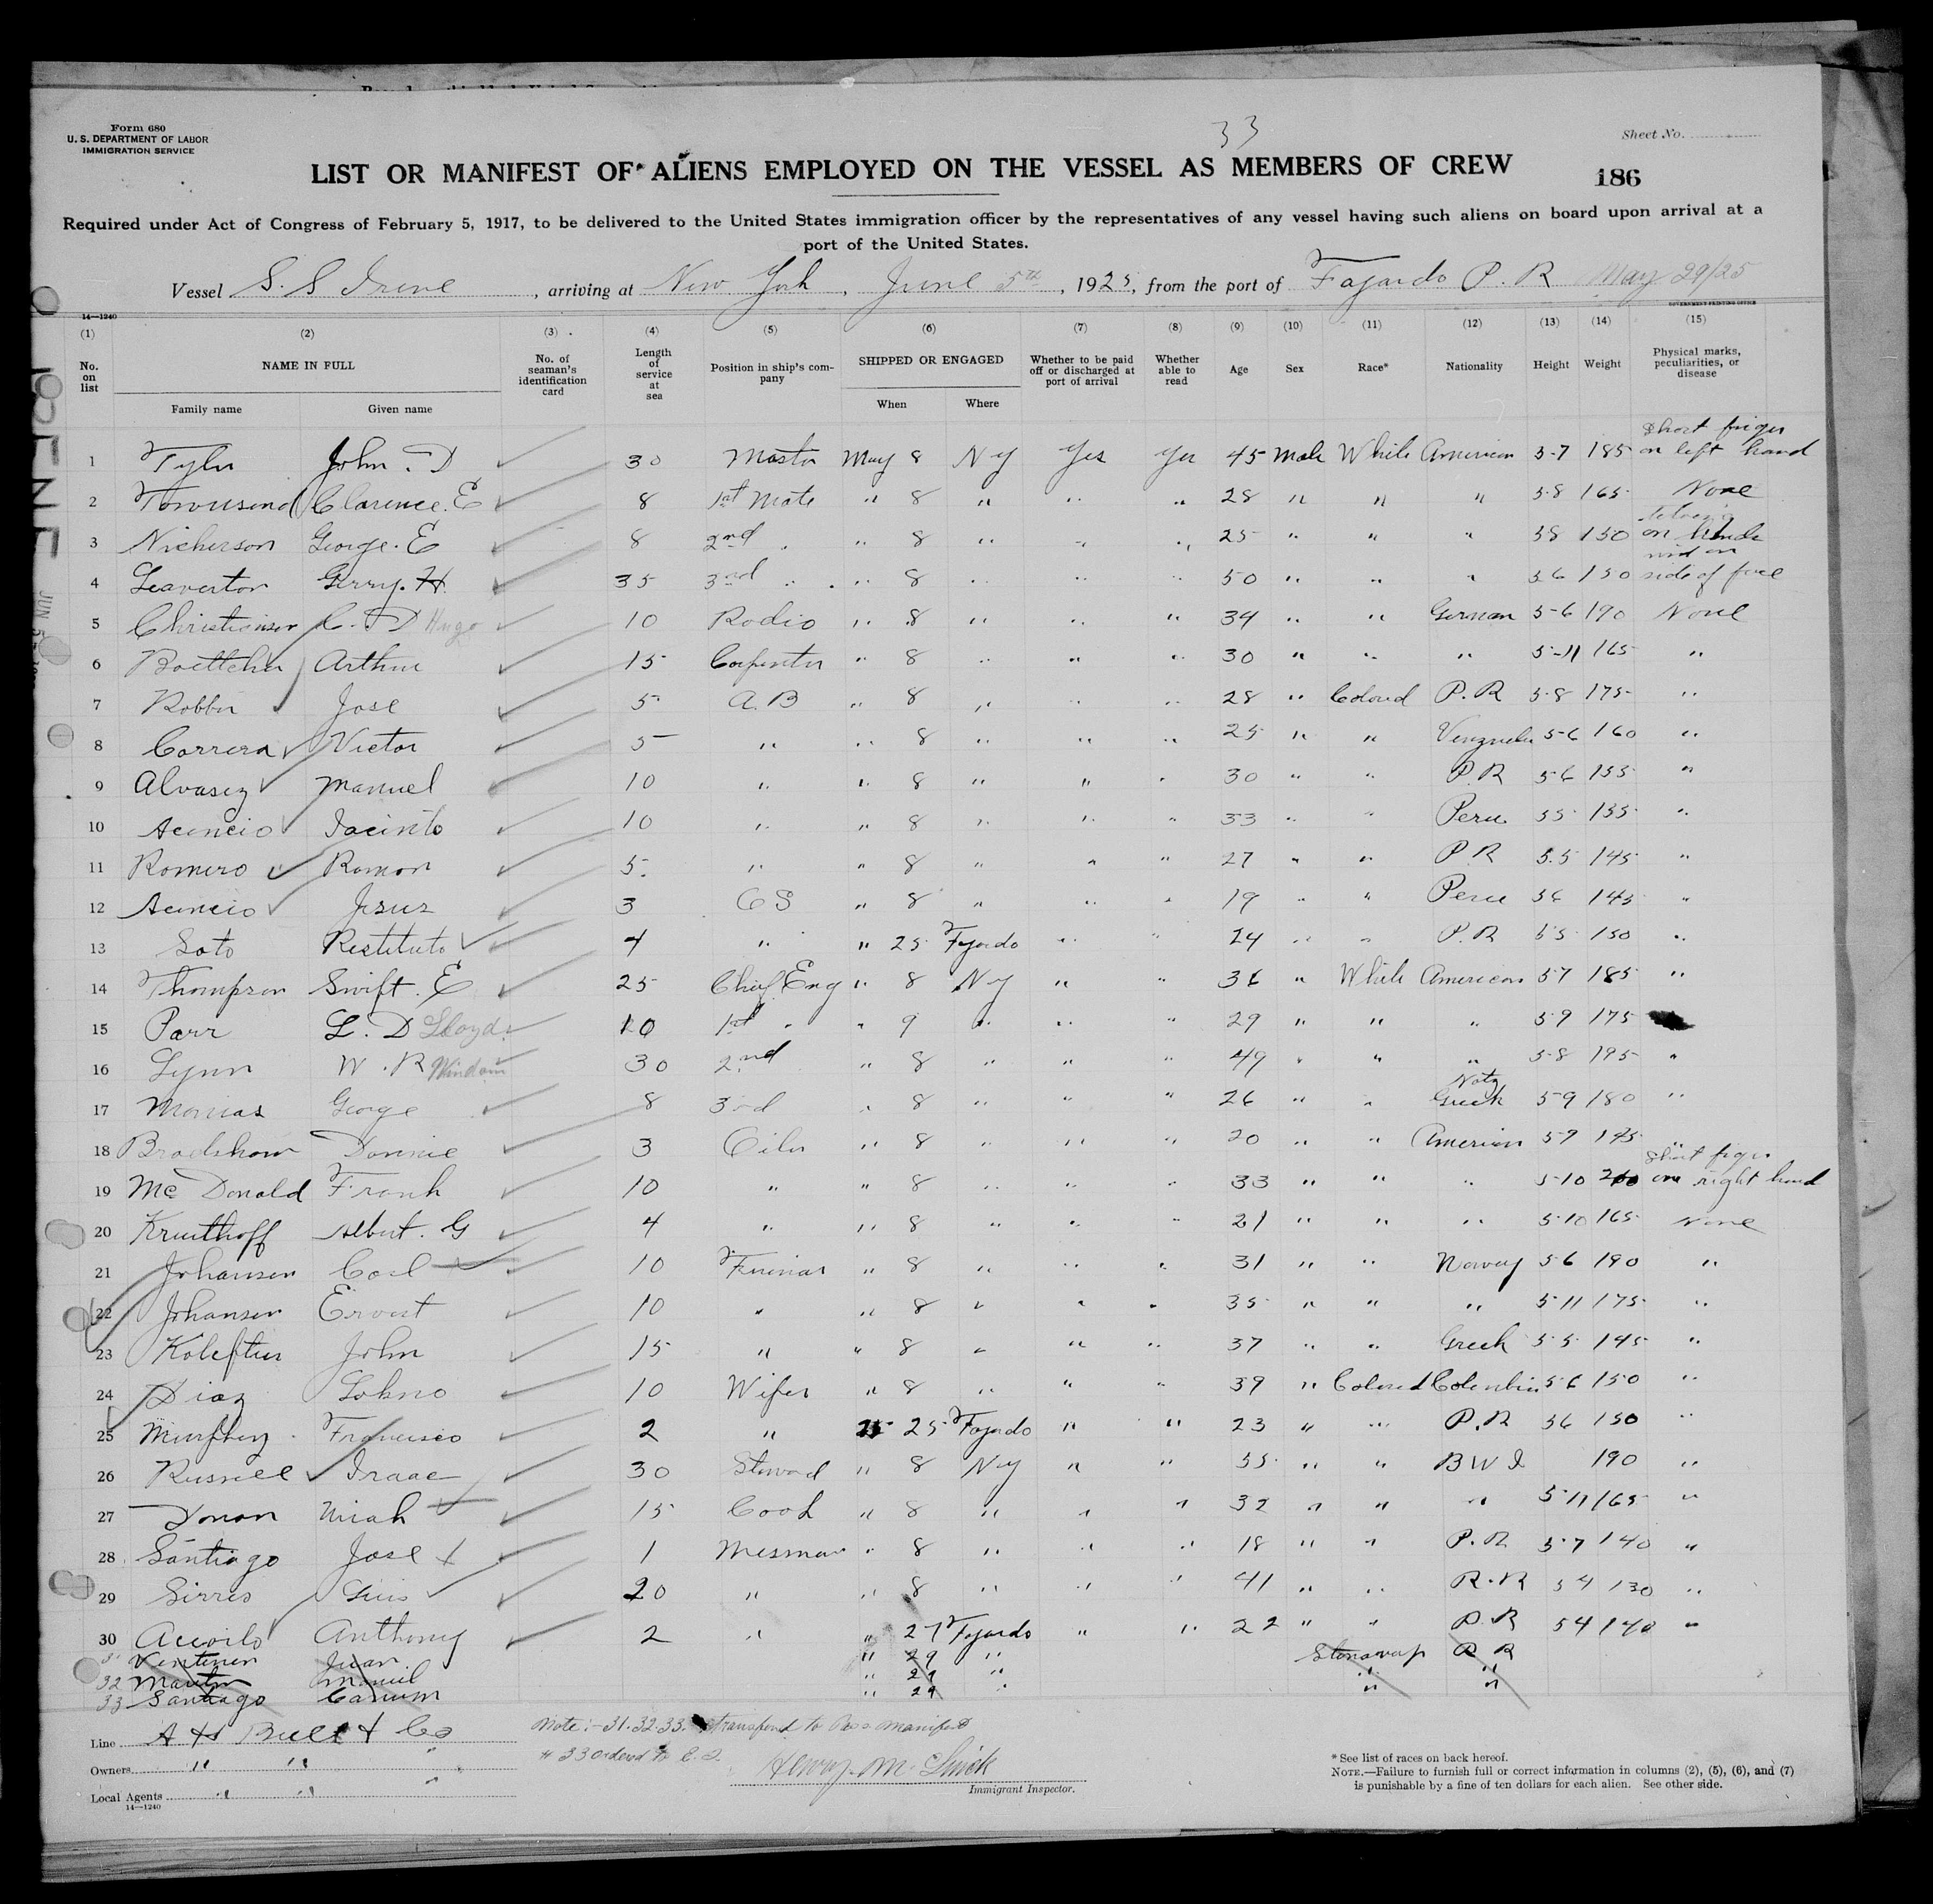 Form 680
U. S. DEPARTMENT OF LABOR
IMMIGRATION SERVICE
33
Sheet No.
LIST OR MANIFEST OF ALIENS EMPLOYED ON THE VESSEL AS MEMBERS OF CREW
186
Required under Act of Congress of February 5, 1917, to be delivered to the United States immigration officer by the representatives of any vessel having such aliens on board upon arrival at a
port of the United States.
Vessel S. S Irene, arriving at New York, June 5th, 1925, from the port of Fajardo P. R May 29/25
14—1240
GOVERNMENT PRINTING OFFICE
(1) (2) (3) (4) (5) (6) (7) (8) (9) (10) (11) (12) (13) (14) (15)
No. on list NAME IN FULL Family name Given name No. of seaman's identification card Length of service at sea Position in ship's company SHIPPED OR ENGAGED When Where Whether to be paid off or discharged at port of arrival Whether able to read Age Sex Race* Nationality Height Weight Physical marks, peculiarities, or disease
1 Tyler John. D 30 Master May 8 NY Yes Yes 45 Male White American 5-7 185 Short finger on left hand
2 Townsend Clarence. E 8 1st Mate " 8 " " " 28 " " " 5-8 165 None
3 Nickerson George. E 8 2nd " " 8 " " " 25 " " " 58 150 on hands
4 Leaverton Gerry. H. 35 3rd " " 8 " " " 50 " " " 56 150 side of face
5 Christiansen C. D Hugo 10 Radio " 8 " " " 34 " " German 5-6 190 None
6 Boettcher Arthur 15 Carpenter " 8 " " " 30 " " " 5-11 165 "
7 Robber Jose 5 A. B " 8 " " " 28 " Colored P. R 5-8 175 "
8 Correra Victor 5 " " 8 " " " 25 " " Venzuela 5-6 160 "
9 Alvarez Manuel 10 " " 8 " " " 30 " " P. R 56 155 "
10 Acencio Jacinto 10 " " 8 " " " 33 " " Peru 55 135 "
11 Romero Ramon 5 " " 8 " " " 27 " " P. R 5.5 145 "
12 Acencio Jesus 3 OS " 8 " " " 19 " " Peru 56 145 "
13 Soto Restituto 4 " " 25 Fajardo " " 24 " " P. R 55 150 "
14 Thompson Swift. E 25 Chief Eng " 8 NY " " 36 " White American 57 185 "
15 Parr L. D Lloyd 10 1st " " 9 " " " 29 " " " 59 175
16 Lynn W. R Windom 30 2nd " 8 " " " 49 " " " 5-8 195 "
17 Monias George 8 3rd " 8 " " " 26 " " Natz Greek 5-9 180 "
18 Bradshaw Donnie 3 Oiler " 8 " " " 20 " " American 59 145 "
19 McDonald Frank 10 " " 8 " " " 33 " " " 5-10 200 Short finger on right hand
20 Kruithoff Albert. G 4 " " 8 " " " 21 " " " 5-10 165 None
21 Johansen Carl 10 Fireman " 8 " " " 31 " " Norway 56 190 "
22 Johansen Ernest 10 " " 8 " " " 35 " " " 5-11 175 "
23 John 15 " " 8 " " " 37 " " Greek 5-5 145 "
24 Diaz 10 Wiper " 8 " " " 39 " Colored Colombia 5-6 150 "
25 Murphey Francisco 2 " 25 Fajardo " " 23 " " P. R 56 150 "
26 Russell Isaac 30 Steward " 8 NY " " 55 " " B W I 190 "
27 Uriah 15 Cook " 8 " " " 32 " " " 5-11 165 "
28 Santiago Jose 1 Mesman " 8 " " " 18 " " P. R 5-7 140 "
29 Sirres 20 " " 8 " " " 41 " " P. R 54 130 "
30 Anthony 2 " " 27 Fajardo " " 22 " " P. R 54 140 "
31 Juan " 29 " Stonaway P R
32 Martin Manuel " 29 " " "
33 Santiago " 29 " " "
Line A H Bull & Co
Owners " " "
Local Agents " " "
14—1240
Note:- 31. 32. 33. transferd to Pass manifest
# 33 ordered to
Immigrant Inspector.
*See list of races on back hereof.
NOTE.—Failure to furnish full or correct information in columns (2), (5), (6), and (7)
is punishable by a fine of ten dollars for each alien. See other side.